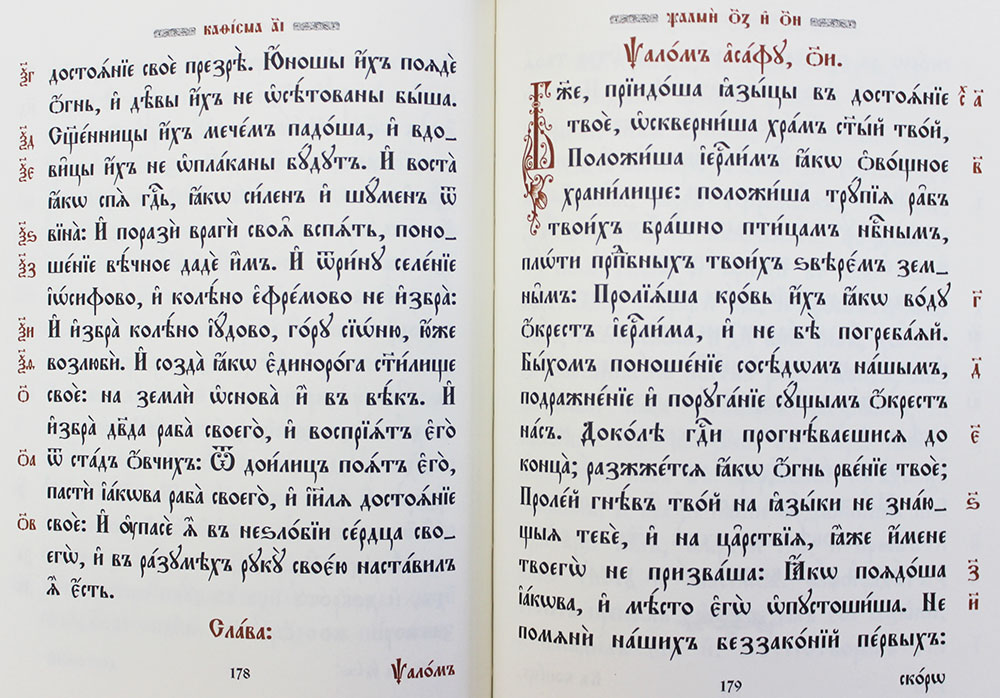 каѳі́сма а҃і
ѯ҃г достоѧ́нїе своѐ презрѣ̀. Ю҆́ношы и҆́хъ поѧдѐ
ѻ҆́гнь, и҆ дѣ̑вы и҆́хъ не ѡ҆сѣ́тованы бы́ша.
ѯ҃д Сщ҃е́нницы и҆́хъ мече́мъ падо́ша, и҆ вдо_
ѯ҃є ви̑цы и҆́хъ не ѡ҆пла́каны бꙋ́дꙋтъ. И҆ воста̀
ꙗ҆́кѡ спѧ̀ гдⷭ҇ь, ꙗ҆́кѡ си́ленъ и҆ шꙋ́менъ ѿ
ѯ҃ѕ вїна̀: И҆ поразѝ врагѝ своѧ̑ вспѧ́ть, поно_
ѯ҃з ше́нїе вѣ́чное дадѐ и҆̀мъ. И҆ ѿри́нꙋ селе́нїе
і҆ѡ́сифово, и҆ колѣ́но є҆фре́мово не и҆збра̀:
ѯ҃и И҆ и҆збра̀ колѣ́но і҆ꙋ́дово, го́рꙋ сїѡ́ню, ю҆́же
ѯ҃ѳ возлюбѝ. И҆ созда̀ ꙗ҆́кѡ є҆диноро́га ст҃и́лище
ѻ҃ своѐ: на землѝ ѡ҆снова̀ и҆̀ въ вѣ́къ. И҆
и҆збра̀ дв҃да раба̀ своего̀, и҆ воспрїѧ́тъ є҆го̀
ѻ҃а ѿ ста́дъ ѻ҆́вчихъ: Ѿ дои́лицъ поѧ́тъ є҆го̀,
пастѝ і҆а́кѡва раба̀ своего̀, и҆ і҆и҃лѧ достоѧ́нїе
ѻ҃в своѐ: И҆ ᲂу҆пасѐ ѧ҆̀ въ неѕло́бїи се́рдца сво_
егѡ̀, и҆ въ ра́зꙋмѣхъ рꙋкꙋ̀ своє́ю наста́вилъ
ѧ҆̀ є҆́сть.
Сла́ва:
178
Ѱало́мъ
ѱалмы̀ ѻ҃з и҆ ѻ҃и
Ѱало́мъ а҆са́фꙋ, ѻ҃и.
Бж҃е, прїидо́ша ꙗ҆зы́цы въ достоѧ́нїе х҃с а҃
твоѐ, ѡ҆скверни́ша хра́мъ ст҃ы́й тво́й,
Положи́ша і҆ерⷭ҇ли́мъ ꙗ҆́кѡ ѻ҆во́щное в҃
храни́лище: положи́ша трꙋ́пїѧ ра̑бъ
твои́хъ бра́шно пти́цамъ нбⷭ҇нымъ,
плѡ́ти прпⷣбныхъ твои́хъ ѕвѣрє́мъ зем_
ны̑мъ: Пролїѧ́ша кро́вь и҆́хъ ꙗ҆́кѡ во́дꙋ г҃
ѻ҆́крестъ і҆ерⷭ҇ли́ма, и҆ не бѣ̀ погреба́ѧй.
Бы́хомъ поноше́нїе сосѣ́дѡмъ на́шымъ, д҃
подражне́нїе и҆ порꙋга́нїе сꙋ́щымъ ѻ҆́крестъ
на́съ. Доко́лѣ гдⷭ҇и прогнѣ́ваешисѧ до є҃
конца̀; разжже́тсѧ ꙗ҆́кѡ ѻ҆́гнь рве́нїе твоѐ;
Проле́й гнѣ́въ тво́й на ꙗ҆зы́ки не зна́ю_ ѕ҃
щыѧ тебѐ, и҆ на ца̑рствїѧ, ꙗ҆̀же и҆́мене
твоегѡ̀ не призва́ша: Ꙗ҆́кѡ поѧдо́ша з҃
і҆а́кѡва, и҆ мѣ́сто є҆гѡ̀ ѡ҆пꙋстоши́ша. Не и҃
помѧнѝ на́шихъ беззако́нїй пе́рвыхъ:
179
ско́рѡ